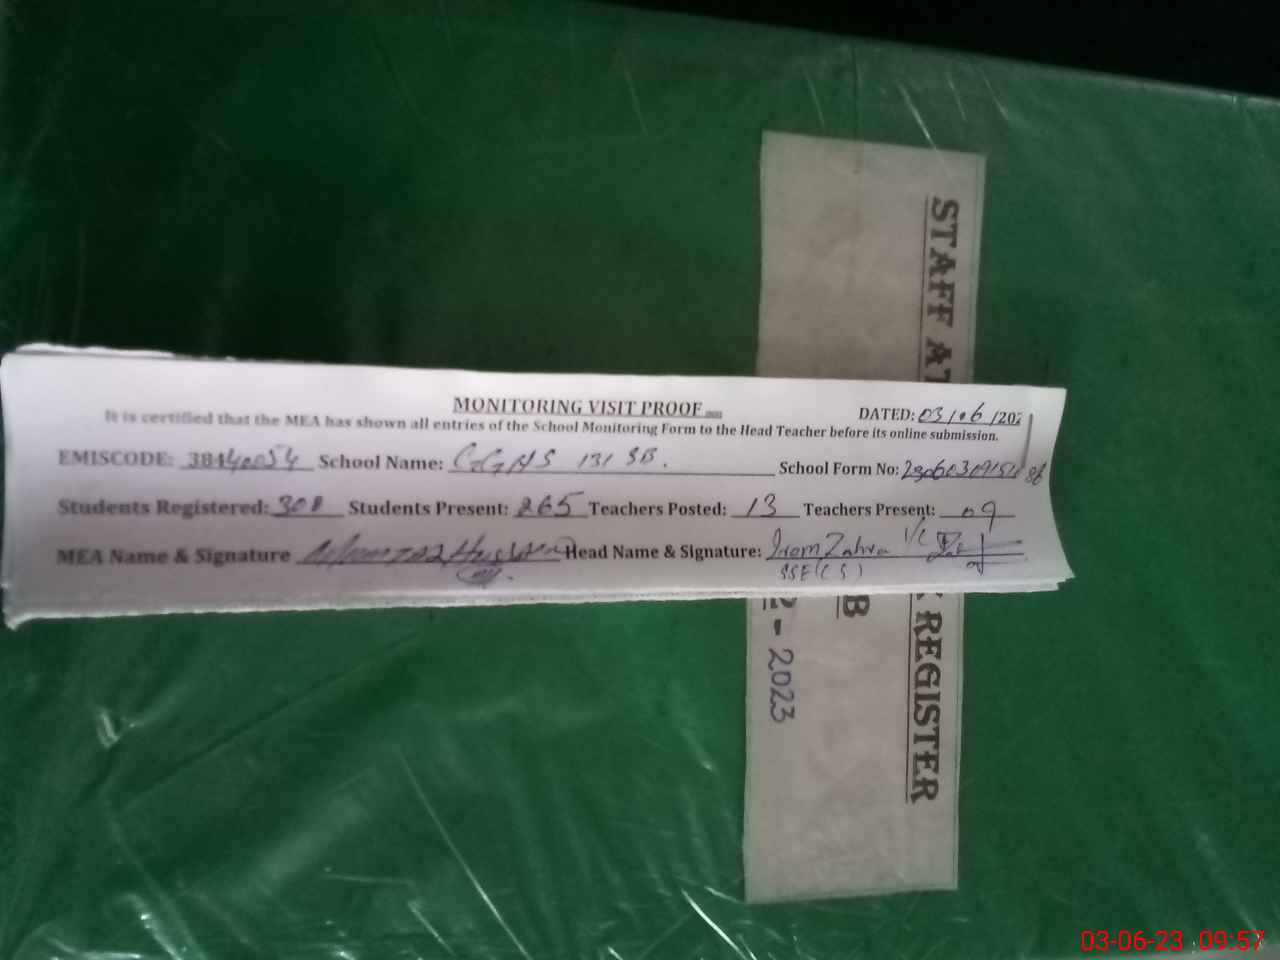 MONITORING VISIT PROOF
DATED: 03/06/202
It is certified that the MEA has shown all entries of the School Monitoring Form to the Head Teacher before its online submission.
EMISCODE: 38440054 School Name: GGHS 131 SB. School Form No:
Students Registered: 308 Students Present: 265 Teachers Posted: 13 Teachers Present: 09
MEA Name & Signature Head Name & Signature: Irom Zahra I/C
SSE(CS)
STAFF AT REGISTER
B
2-2023
03-06-23 09:57